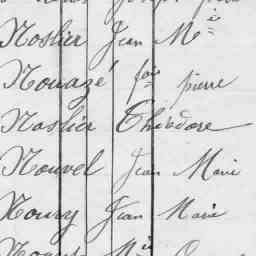 Noslier Jean Mie
Nouazé fois pierre
Naslier Théodore
Nouvel Jean Marie
Noury Jean Marie